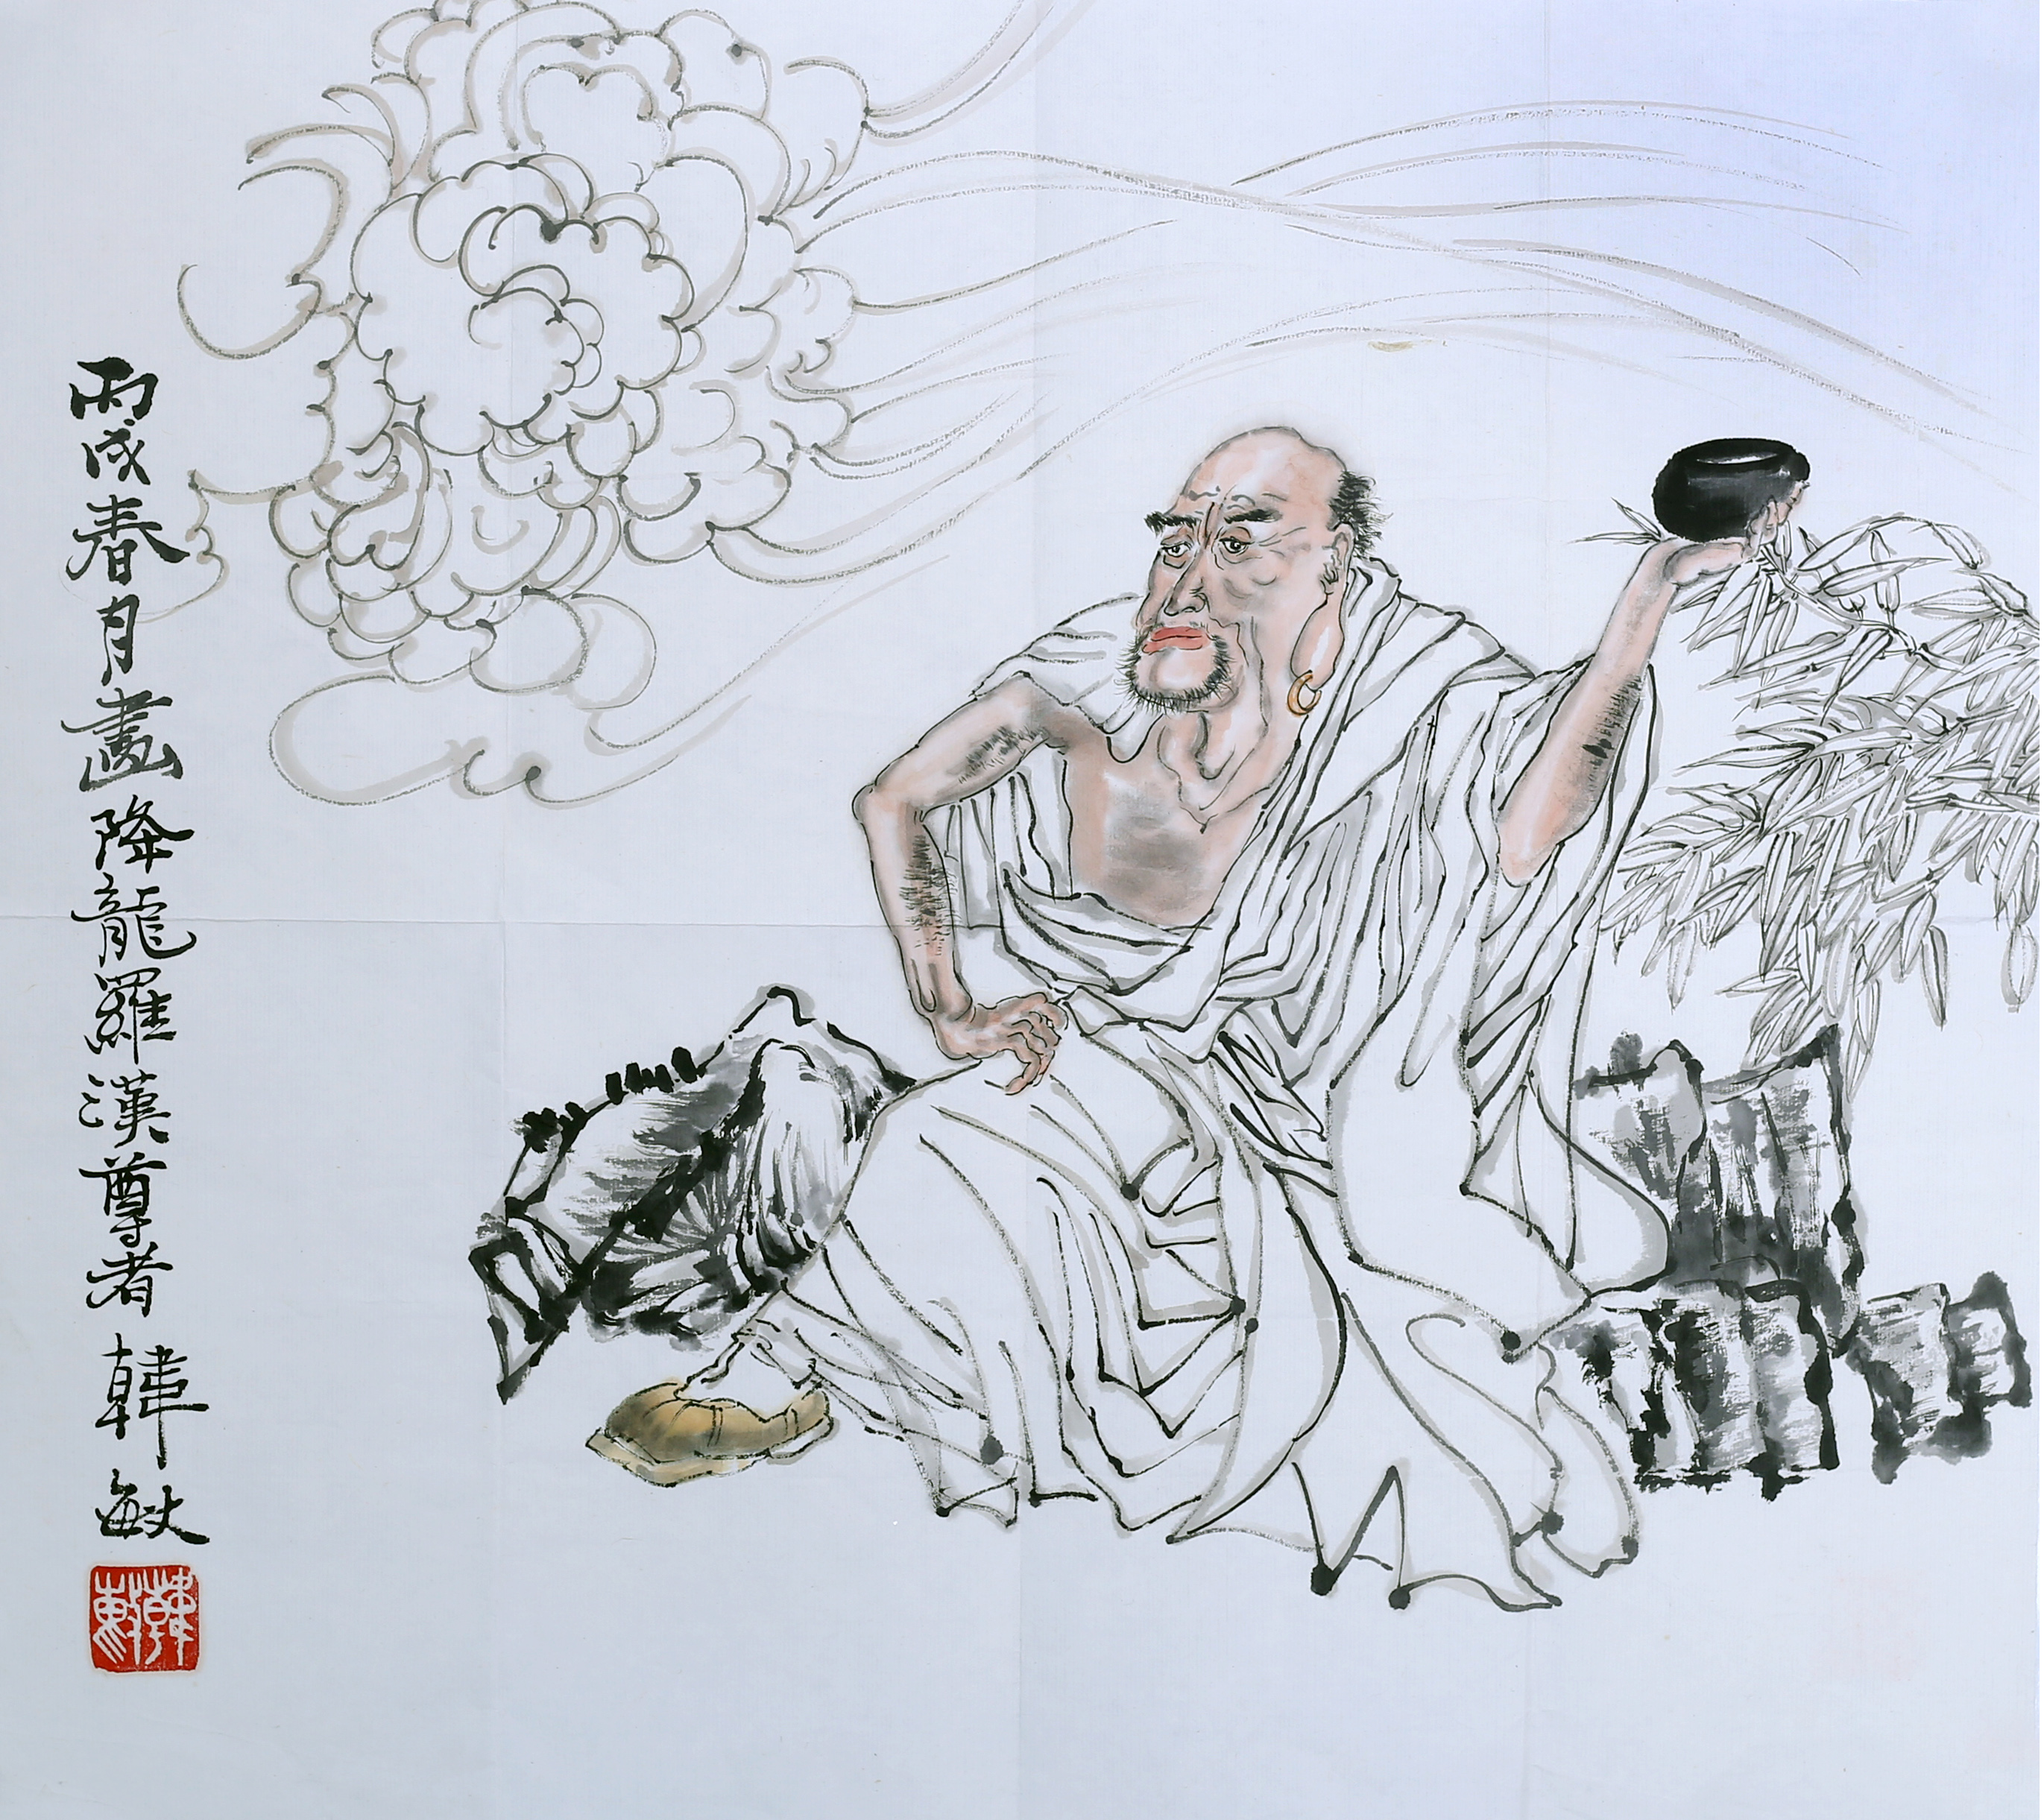 丙戌春月畫降龍羅漢尊者韓敏